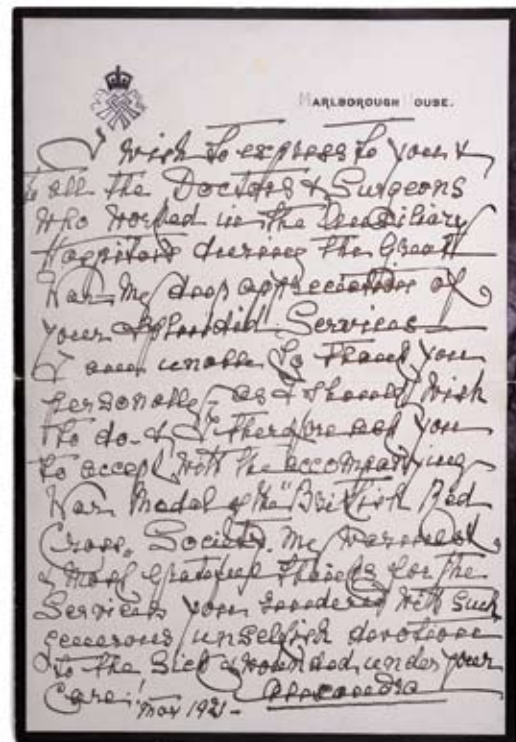 MARLBOROUGH HOUSE.
I wish to express to you &
to all the Doctors & Surgeons
who worked in the Auxiliary
Hospitals during the Great
War my deep appreciation of
your splendid Services
I am unable to thank you
personally, as I should wish
to do - & I therefore ask you
to accept with the accompanying
War Medal of the "British Red
Cross" Society. my warmest
& most grateful thanks for the
Services you rendered with such
generous unselfish devotion
to the Sick & wounded under your
Care!
Alexandra
1921 -